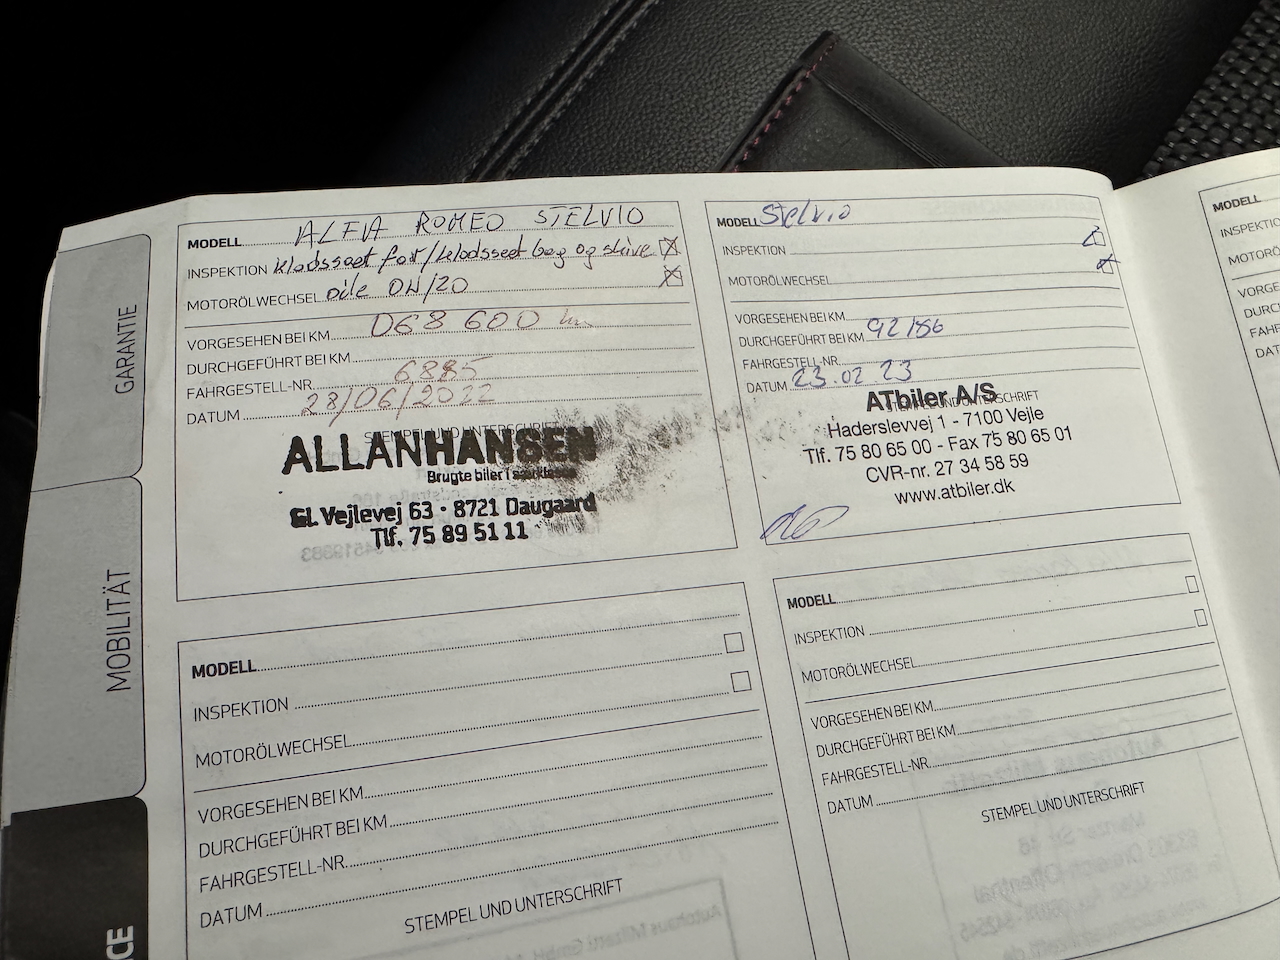 GARANTIE
MOBILITÄT
CE
MODELL ALFA ROMEO STELVIO
INSPEKTION klodssaet for/klodssaet bag og skive
MOTORÖLWECHSEL oile 0W/20
VORGESEHEN BEI KM 068 600 km
DURCHGEFÜHRT BEI KM
FAHRGESTELL-NR. 6885
DATUM 28/06/2022
STEMPEL UND UNTERSCHRIFT
ALLANHANSEN
Brugte biler i særklasse
Gl. Vejlevej 63 · 8721 Daugaard
Tlf. 75 89 51 11
MODELL Stelvio
INSPEKTION
MOTORÖLWECHSEL
VORGESEHEN BEI KM
DURCHGEFÜHRT BEI KM 92186
FAHRGESTELL-NR.
DATUM 23.02.23
STEMPEL UND UNTERSCHRIFT
ATbiler A/S
Haderslevvej 1 - 7100 Vejle
Tlf. 75 80 65 00 - Fax 75 80 65 01
CVR-nr. 27 34 58 59
www.atbiler.dk
MODELL
INSPEKTION
MOTORÖLWECHSEL
VORGESEHEN BEI KM
DURCHGEFÜHRT BEI KM
FAHRGESTELL-NR.
DATUM
STEMPEL UND UNTERSCHRIFT
MODELL
INSPEKTION
MOTORÖLWECHSEL
VORGESEHEN BEI KM
DURCHGEFÜHRT BEI KM
FAHRGESTELL-NR.
DATUM
STEMPEL UND UNTERSCHRIFT
MODELL
INSPEKTIO
MOTORÖ
VORGE
DURC
FAHR
DAT